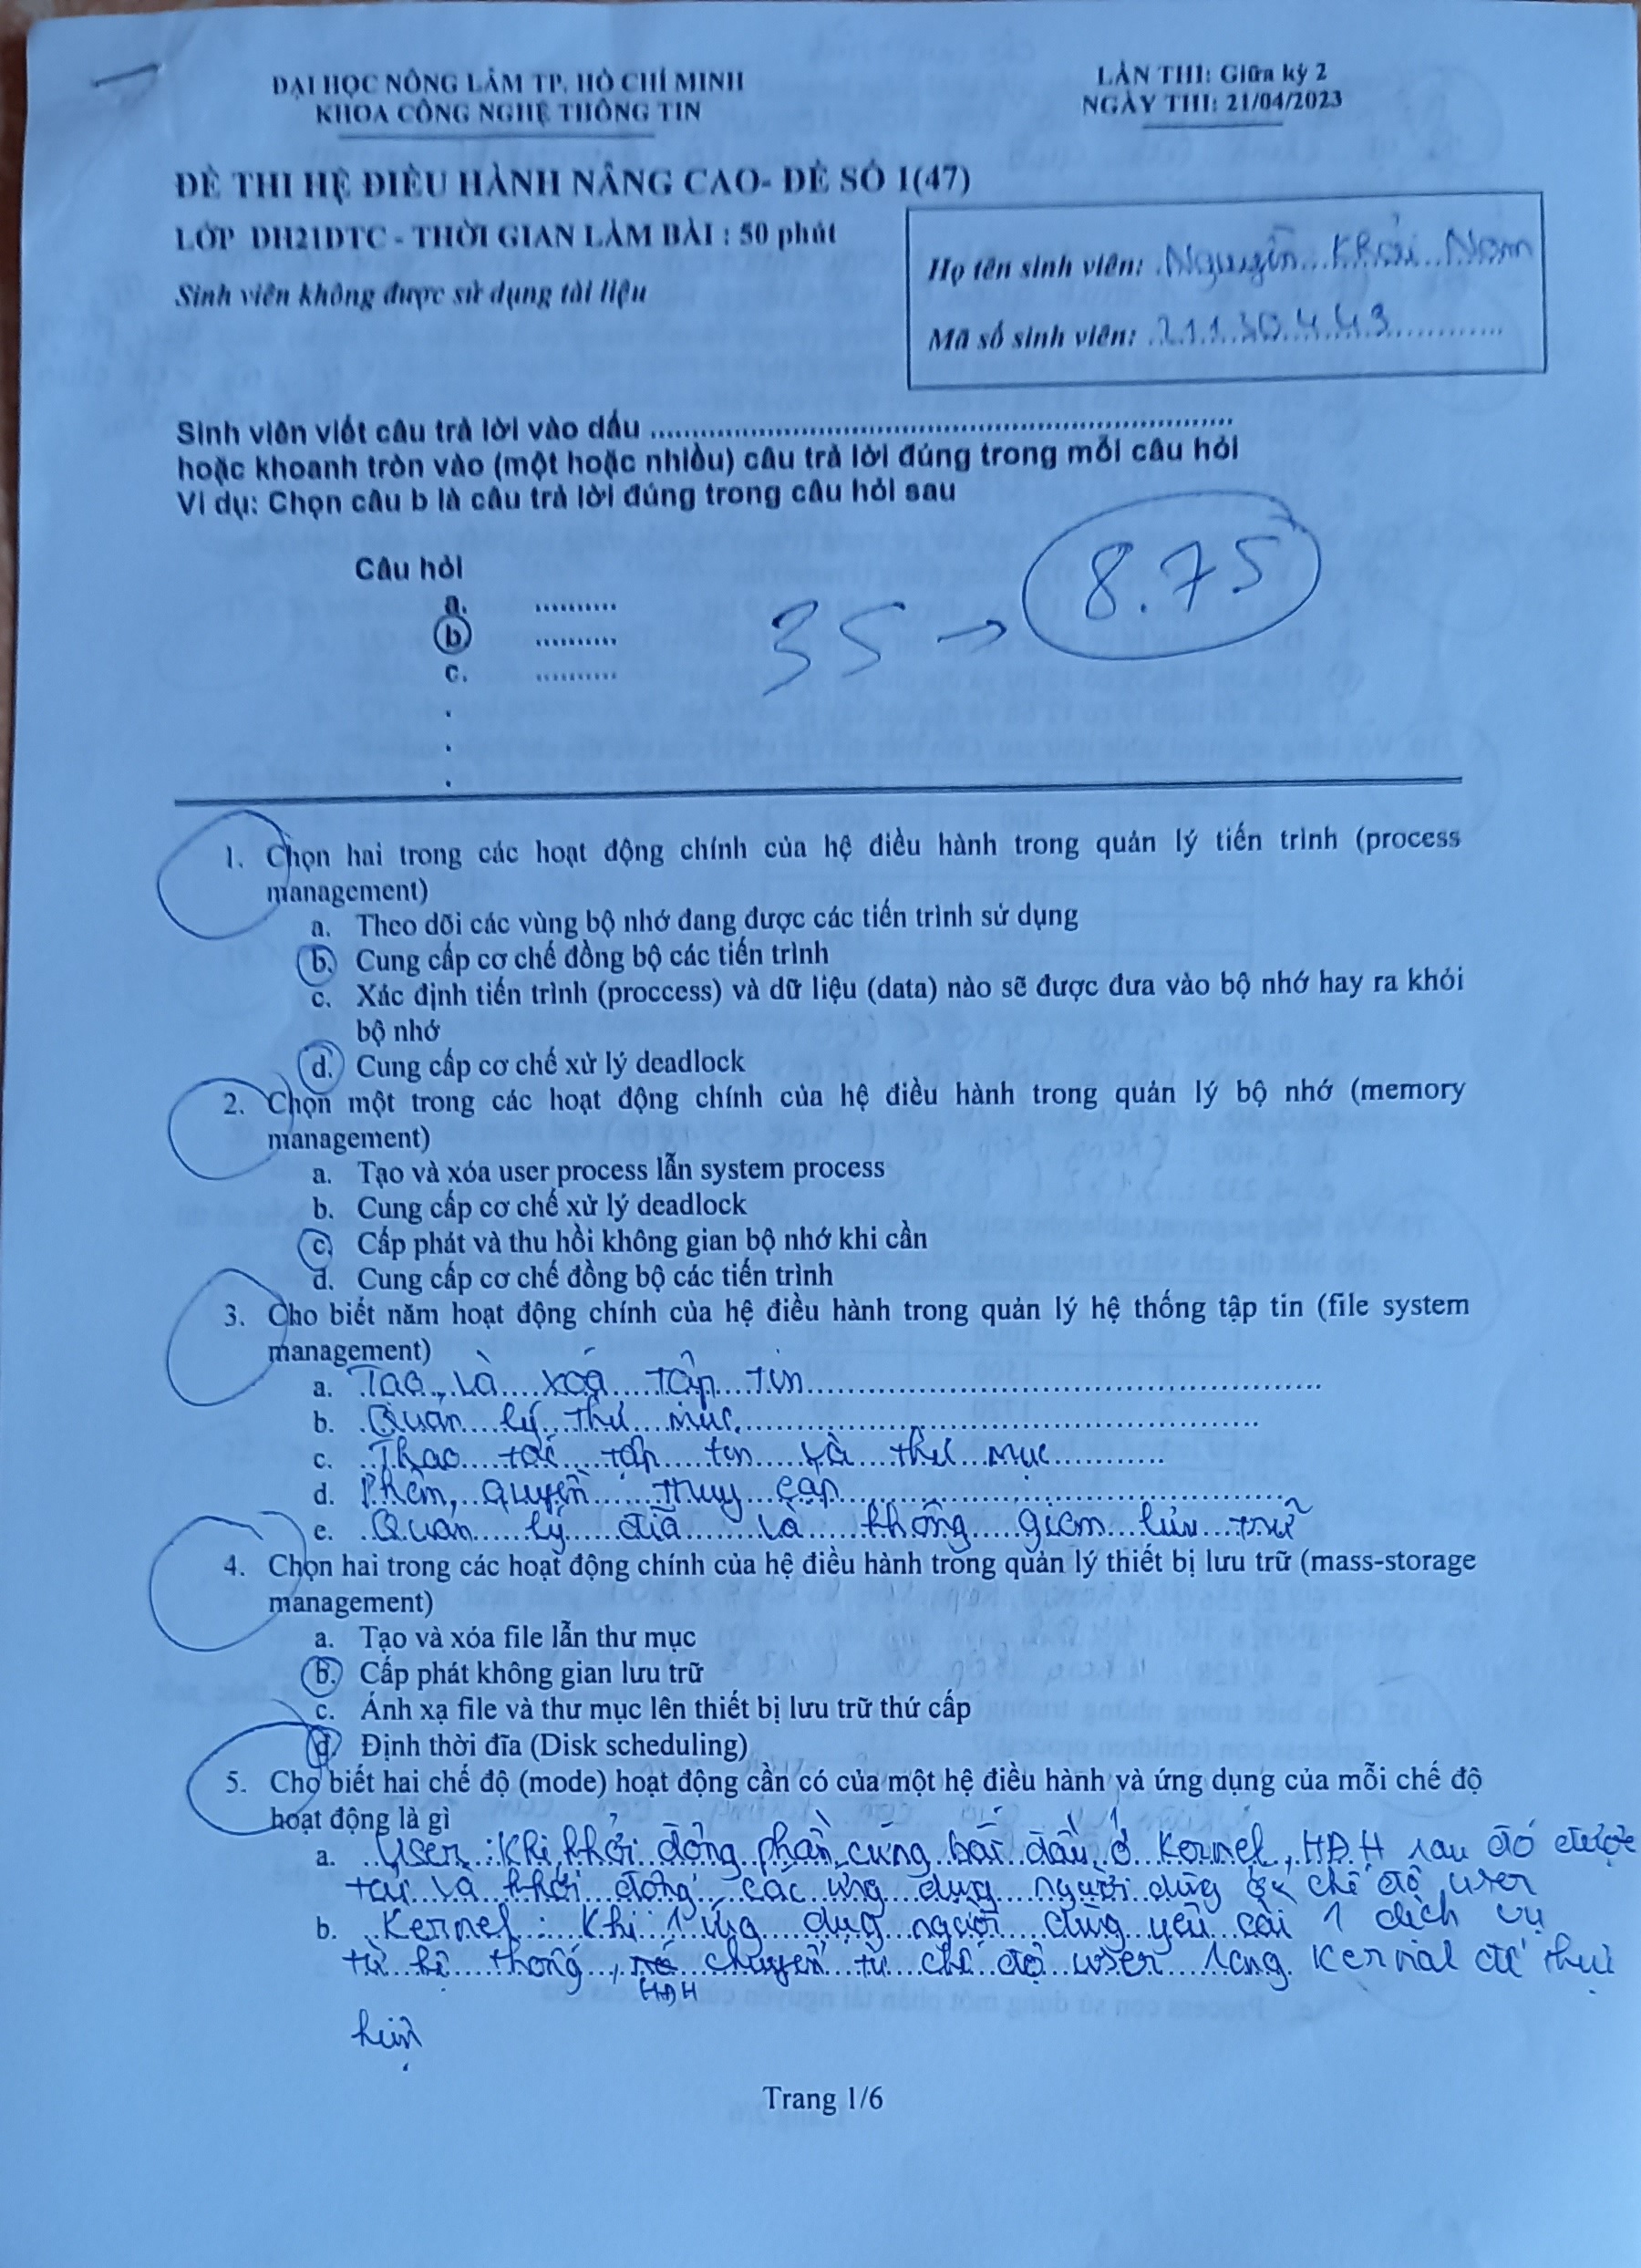 ĐẠI HỌC NÔNG LÂM TP. HỒ CHÍ MINH
KHOA CÔNG NGHỆ THÔNG TIN
LẦN THI: Giữa kỳ 2
NGÀY THI: 21/04/2023
ĐỀ THI HỆ ĐIỀU HÀNH NÂNG CAO- ĐỀ SỐ 1(47)
LỚP DH21DTC - THỜI GIAN LÀM BÀI : 50 phút
Sinh viên không được sử dụng tài liệu
Họ tên sinh viên: Nguyễn Khải Nam
Mã số sinh viên: 21130443
Sinh viên viết câu trả lời vào dấu ..........
hoặc khoanh tròn vào (một hoặc nhiều) câu trả lời đúng trong mỗi câu hỏi
Ví dụ: Chọn câu b là câu trả lời đúng trong câu hỏi sau
Câu hỏi
a. ..........
b. ..........
c. ..........
35 → 8.75
1. Chọn hai trong các hoạt động chính của hệ điều hành trong quản lý tiến trình (process
management)
a. Theo dõi các vùng bộ nhớ đang được các tiến trình sử dụng
b. Cung cấp cơ chế đồng bộ các tiến trình
c. Xác định tiến trình (proccess) và dữ liệu (data) nào sẽ được đưa vào bộ nhớ hay ra khỏi
bộ nhớ
d. Cung cấp cơ chế xử lý deadlock
2. Chọn một trong các hoạt động chính của hệ điều hành trong quản lý bộ nhớ (memory
management)
a. Tạo và xóa user process lẫn system process
b. Cung cấp cơ chế xử lý deadlock
c. Cấp phát và thu hồi không gian bộ nhớ khi cần
d. Cung cấp cơ chế đồng bộ các tiến trình
3. Cho biết năm hoạt động chính của hệ điều hành trong quản lý hệ thống tập tin (file system
management)
a. Tạo và xoá tập tin
b. Quản lý thư mục
c. Thao tác tập tin và thư mục
d. Phân quyền truy cập
e. Quản lý đĩa và không gian lưu trữ
4. Chọn hai trong các hoạt động chính của hệ điều hành trong quản lý thiết bị lưu trữ (mass-storage
management)
a. Tạo và xóa file lẫn thư mục
b. Cấp phát không gian lưu trữ
c. Ánh xạ file và thư mục lên thiết bị lưu trữ thứ cấp
d. Định thời đĩa (Disk scheduling)
5. Cho biết hai chế độ (mode) hoạt động cần có của một hệ điều hành và ứng dụng của mỗi chế độ
hoạt động là gì
a. User : Khi khởi động phần cứng bắt đầu ở Kernel, HĐH sau đó được
tải và khởi động các ứng dụng người dùng chế độ user
b. Kernel : Khi 1 ứng dụng người dùng yêu cầu 1 dịch vụ
từ hệ thống, HĐH chuyển từ chế độ user sang Kernal để thực
hiện
Trang 1/6